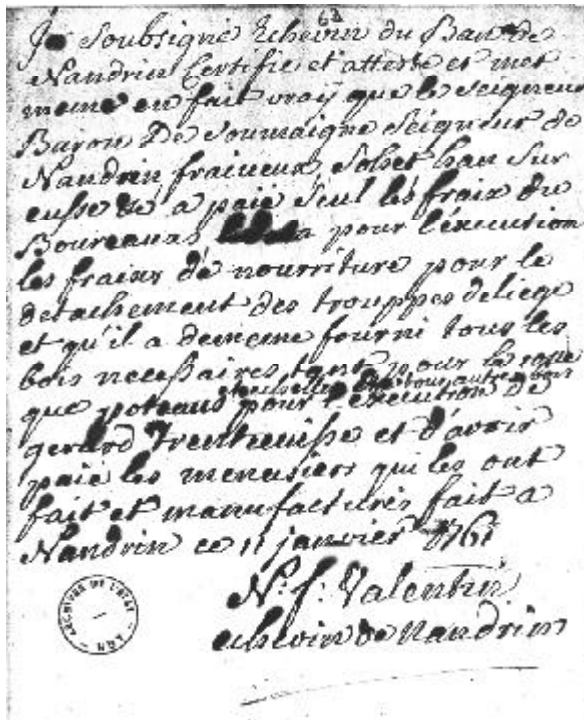 63
Je Soubsigné Echevin du Ban de
Nandrin Certifie et atteste et met
meme en fait vraÿ que le seigneur
Baron De Soumaigne Seigneur de
Nandrin fraineux, Solset han Sur
a paié seul les fraix du
Boureaux pour l'éxecution
les fraix de nourriture pour le
detachement des trouppes de liege
et qu'il a de meme fourni tous les
bois necessaires tant pour la roue
autre bois
que poteaux pour l'éxecution de
gerard et d'avoir
paié les menusiers qui les ont
fait et manufacturés fait a
Nandrin ce 11 janvier 1761
N: f: Valentin
echevin de Nandrin
ARCHIVES DE L'ETAT